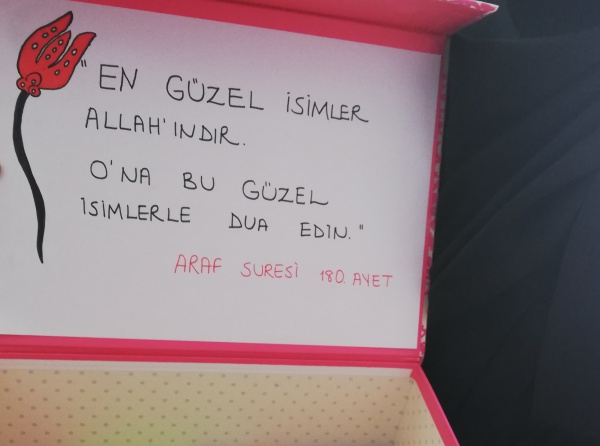 "EN GÜZEL İSİMLER
ALLAH'INDIR.
O'NA BU GÜZEL
İSİMLERLE DUA EDİN."
ARAF SURESİ 180. AYET